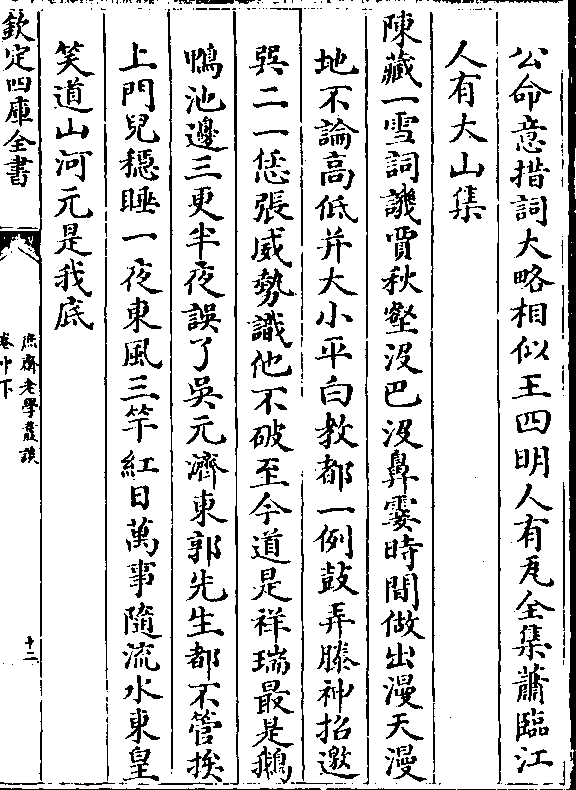 公命意措詞大略相似王四明人有瓦全集蕭臨江
人有大山集
陳藏一雪詞譏賈秋壑没巴没鼻霎時間做出漫天漫
地不論高低并大小平白教都一例鼓弄滕神招邀
巽二一恁張威勢識他不破至今道是祥瑞最是鵝
鴨池邊三更半夜誤了吳元濟東郭先生都不管挨
上門兒穩睡一夜東風三竿紅日萬事隨流水東皇
笑道山河元是我底
欽定四庫全書
庶齋老學叢談
卷中下
十二